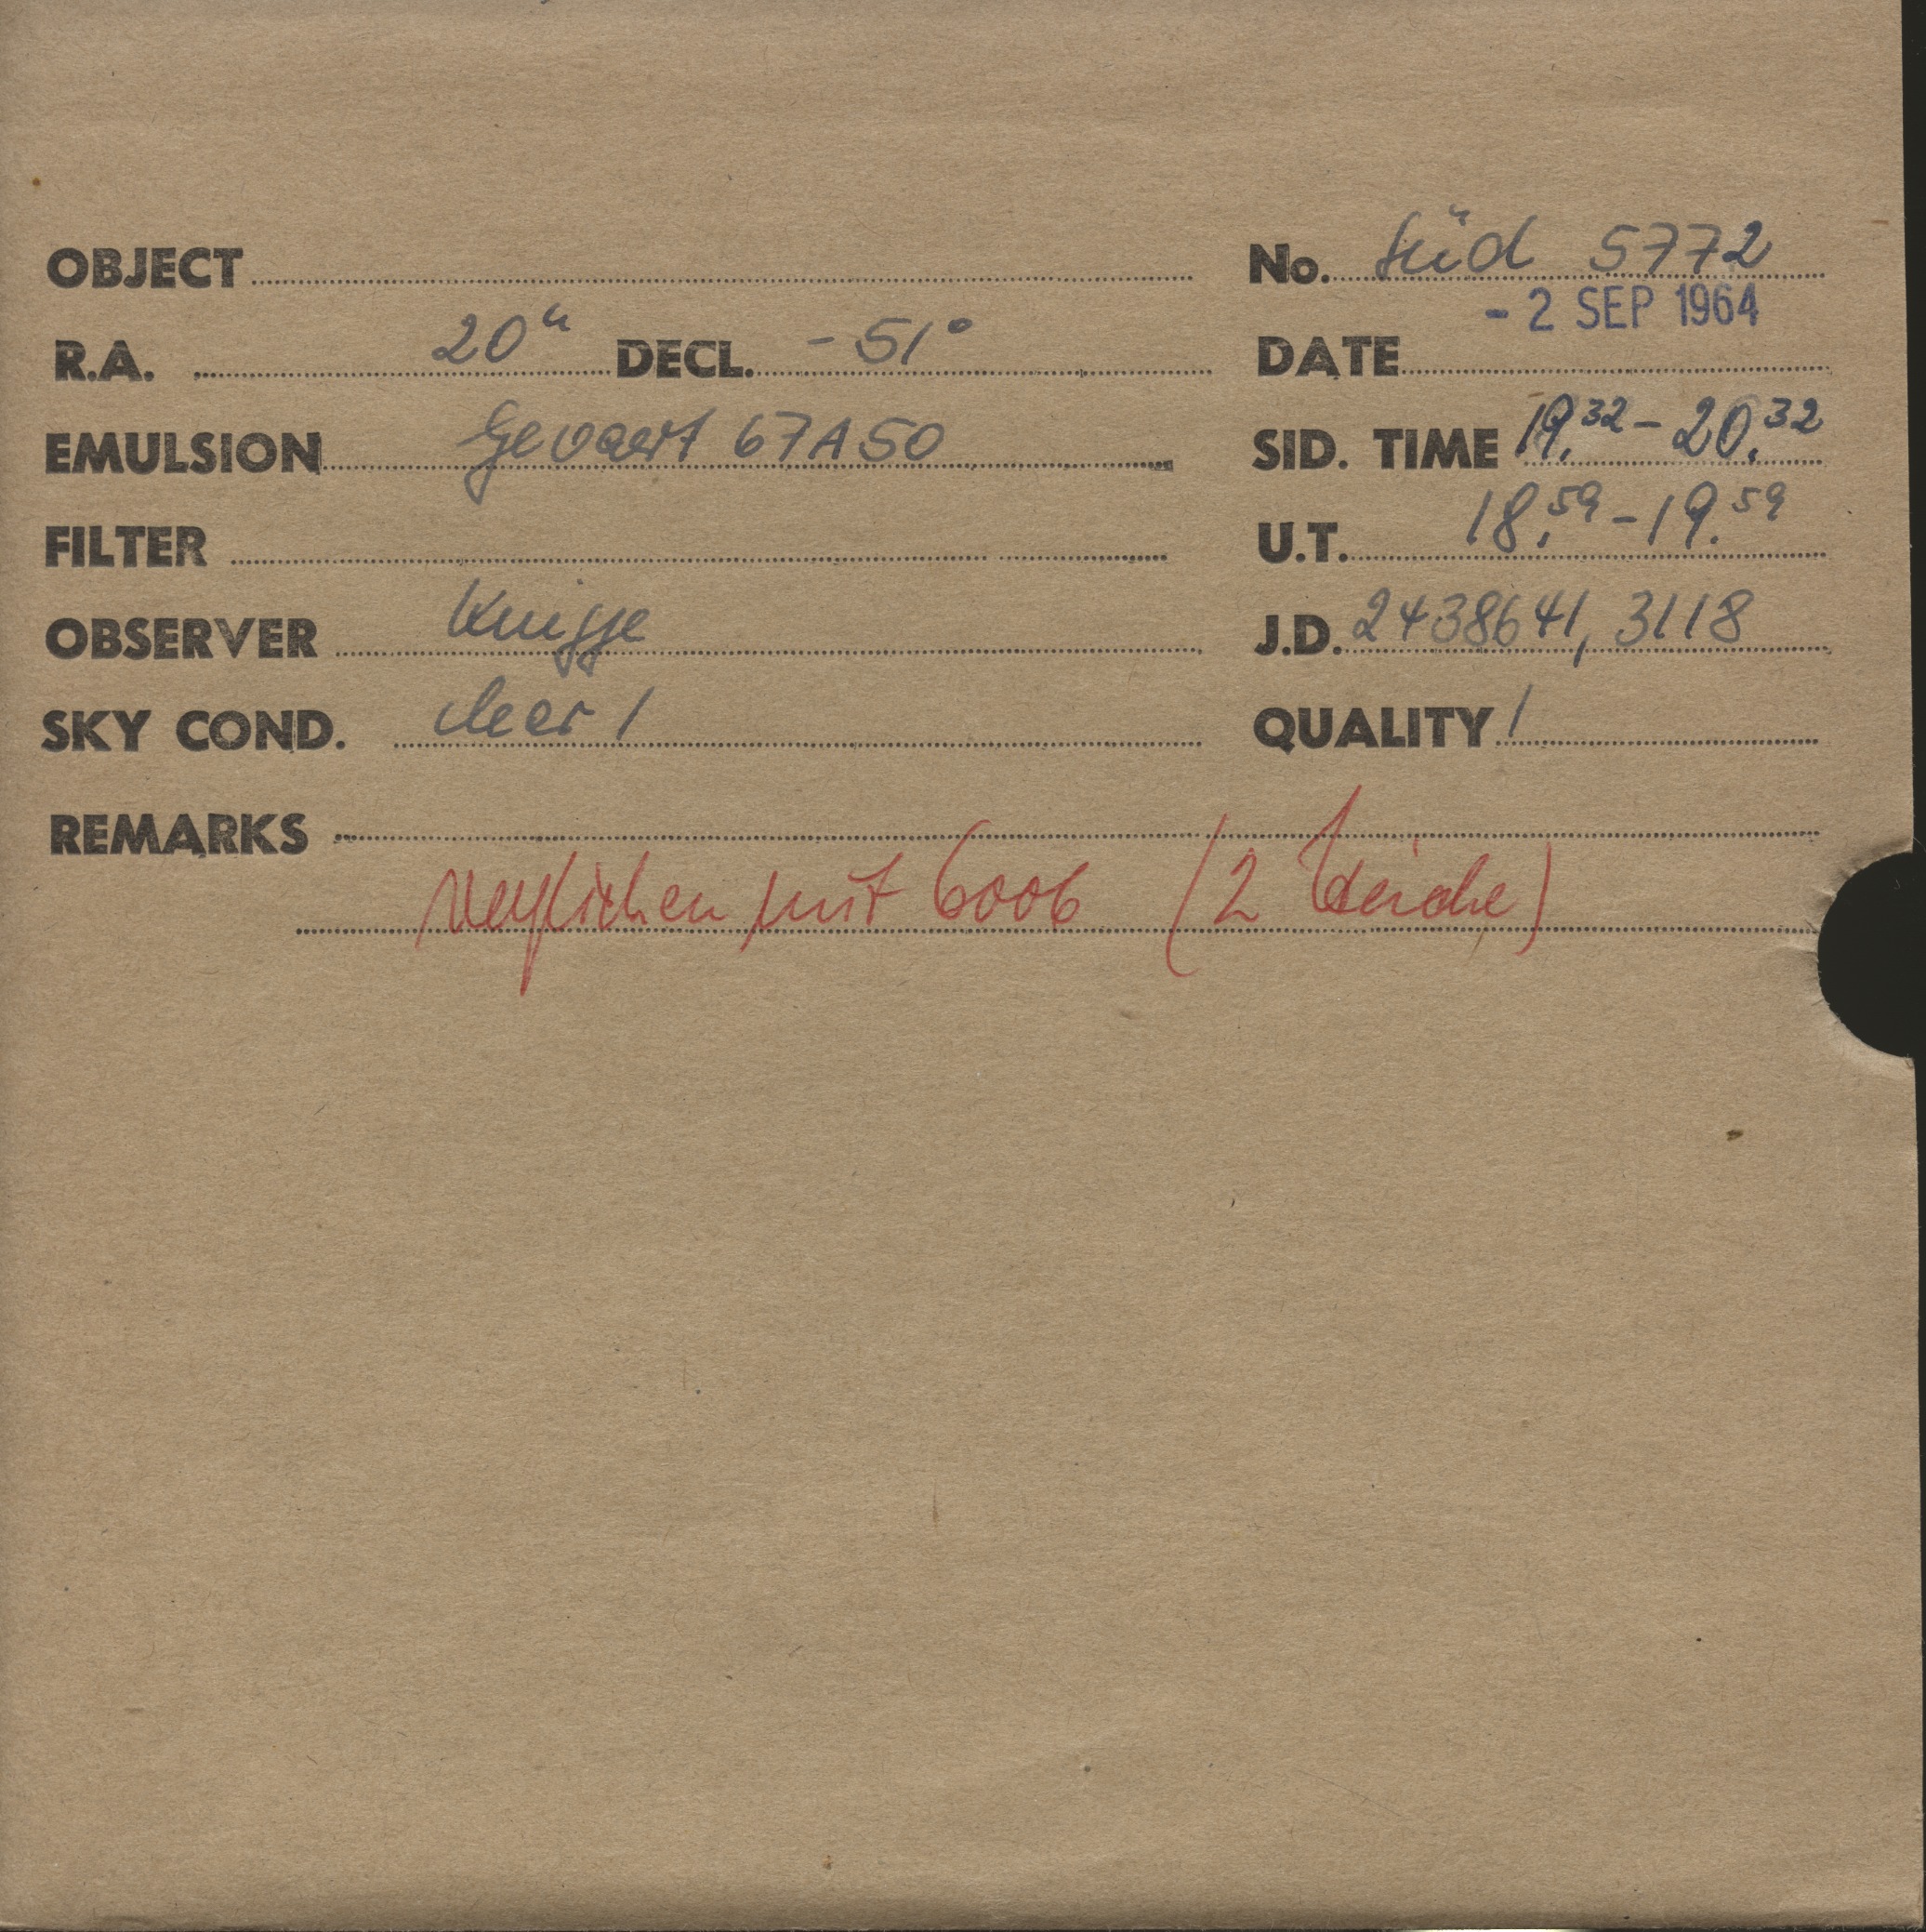 OBJECT
No. Süd 5772
- 2 SEP 1964
R.A. 20h DECL. - 51°
DATE
EMULSION Gevaert 67A50
SID. TIME 19.32 - 20.32
FILTER
U.T. 18.59 - 19.59
OBSERVER Knigge
J.D. 2438641,3118
SKY COND. clear 1
QUALITY 1
REMARKS
verglichen mit 6006 (2